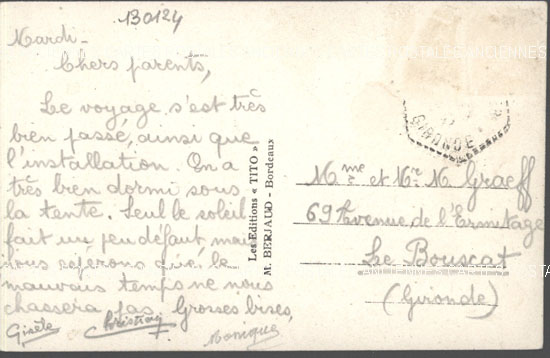 130124
Mardi -
Chers parents,
Le voyage s'est très
bien passé, ainsi que
l'installation. On a
très bien dormi sous
la tente. Seul le soleil
fait un peu défaut, mais
nous espérons que le
mauvais temps ne nous
chassera pas. Grosses bises,
Gisèle Christian
Monique
Les Editions « TITO »
M. BERJAUD - Bordeaux
GIRONDE
Mme et Mr M Graeff
69 Avenue de l'Ermitage
Le Bouscat
(Gironde)